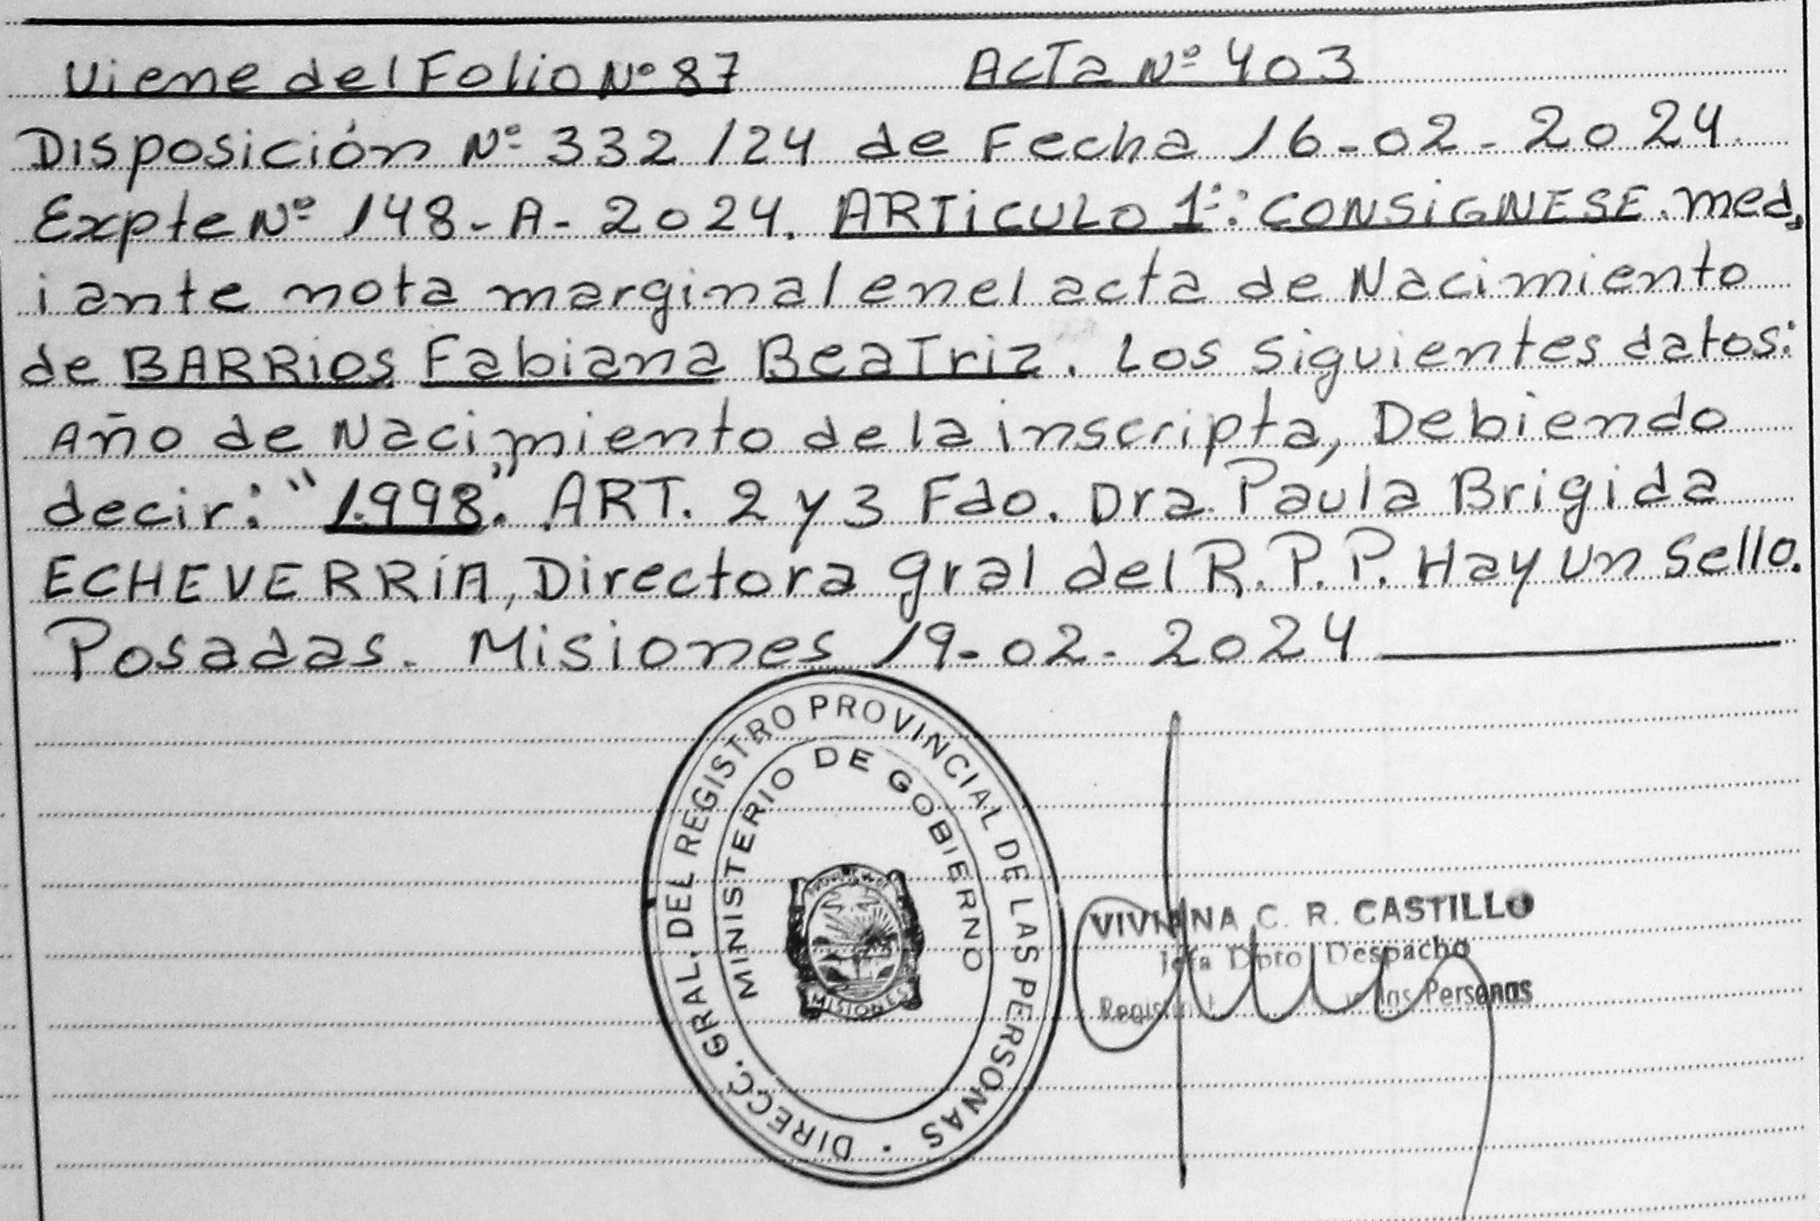 Viene del Folio Nº 87 Acta Nº 403
Disposición Nº 332/24 de Fecha 16-02-2024.
Expte Nº 148-A-2024. ARTiCULO 1º: CONSiGNESE. med,
iante nota marginal en el acta de Nacimiento
de BARRios Fabiana BeaTriz. Los siguientes datos:
Año de Nacimiento de la inscripta, Debiendo
decir: "1.998". ART. 2 y 3 Fdo. Dra. Paula Brigida
ECHEVERRíA, Directora gral del R.P.P. Hay un Sello.
Posadas. Misiones 19-02-2024
DIRECC. GRAL. DEL REGISTRO PROVINCIAL DE LAS PERSONAS
MINISTERIO DE GOBIERNO
MISIONES
VIVIANA C. R. CASTILLO
Jefa Dpto Despacho
las Personas